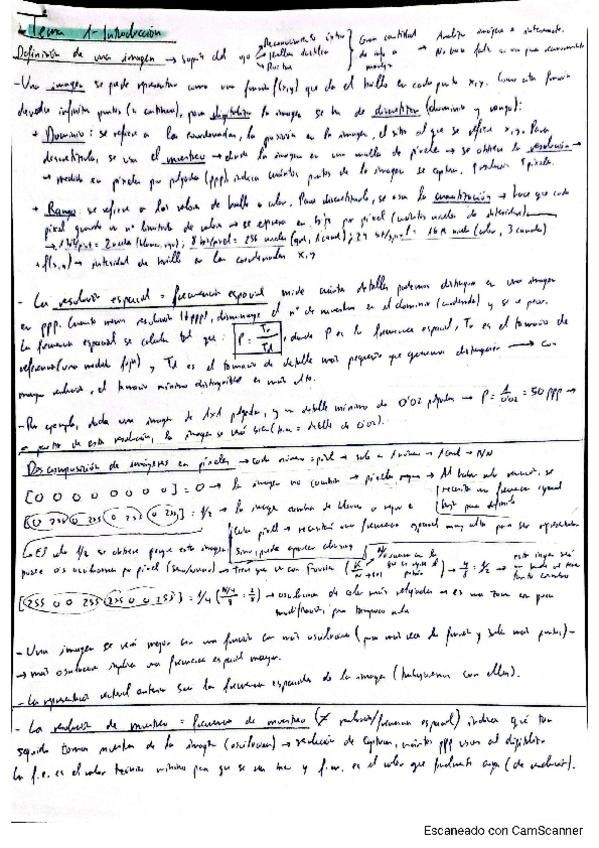 Tema 1 - Introducción
Definición de una imagen → supón del ojo Reconocimiento Gran cantidad de info → Analizar imágenes e internamente.
- Una imagen se puede representar como una función f(x,y) que da el brillo en cada punto x,y. Como esta función
devuelve infinitos puntos (es continua), para digitalizar la imagen se ha de discretizar (dominio y rango):
• Dominio: se refiere a las coordenadas, la posición en la imagen, el sitio al que se refiere x,y. Para
discretizarlo, se usa el muestreo → divide la imagen en una malla de píxeles → se obtiene la resolución →
→ medida en píxeles por pulgada (ppp), indica cuántos puntos de la imagen se capturan.
• Rango: se refiere a los valores de brillo o color. Para discretizarlo, se usa la cuantización → hace que cada
píxel guarde un nº limitado de valores → se expresa en bits por píxel (cuántos niveles de intensidad)
→ 1 bit/píxel = 2 niveles (blanco, negro); 8 bit/píxel = 256 niveles (gris, 1 canal); 24 bit/píxel = 16M niveles (color, 3 canales)
• f(x,y) → intensidad de brillo en las coordenadas x,y
- La resolución espacial = frecuencia espacial mide cuántos detalles podemos distinguir en una imagen
en ppp. Cuanto menor resolución (↓ppp), disminuye el nº de muestras en el dominio (coordenadas) y se ve peor.
La frecuencia espacial se calcula tal que: P = Tr/Td, donde P es la frecuencia espacial, Tr es el tamaño de
referencia (una medida fija) y Td es el tamaño de detalle más pequeño que queremos distinguir → con
mayor resolución, el tamaño mínimo distinguible es más alto.
- Por ejemplo, dada una imagen de 1x1 pulgadas, y un detalle mínimo de 0'02 pulgadas → P = 1/0'02 = 50 ppp →
a partir de esta resolución, la imagen se verá bien (mín = detalle de 0'02).
Descomposición de imágenes en píxeles → cada número = píxel → solo 1 canal → N/N
[0 0 0 0 0 0 0 0] = 0 → la imagen no cambia → píxeles negros → Al haber poca variación, se necesita una frecuencia espacial baja para definirla
[0 255 0 255 0 255 0 255] = 1/2 → la imagen cambia de blanco a negro
cada píxel → necesitará una frecuencia espacial muy alta para ser representada
Sino, puede aparecer aliasing
Ese valor 1/2 se obtiene porque esta imagen
posee 0's oscilaciones por píxel → tiene que ver con Fourier
[255 0 0 255 255 0 0 255] = 1/4 → oscilaciones de color más relajadas → es una zona con poca
modificación, pero tampoco nula
- Una imagen se verá mejor con una función con más oscilaciones (pasa más veces la función y sale más puntos) →
→ más oscilaciones implica una frecuencia espacial mayor.
- La representación vectorial anterior son las frecuencias espaciales de la imagen (trabajaremos con ellas).
- La resolución de muestreo = frecuencia de muestreo (≠ resolución/frecuencia espacial) indica qué tan
seguido tomas muestras de la imagen (oscilaciones) → resolución de captura, cuántos ppp usas al digitalizar.
La f.e. es el valor teórico mínimo para que se vea bien y f.m. es el valor que realmente coges (de resolución).
Escaneado con CamScanner